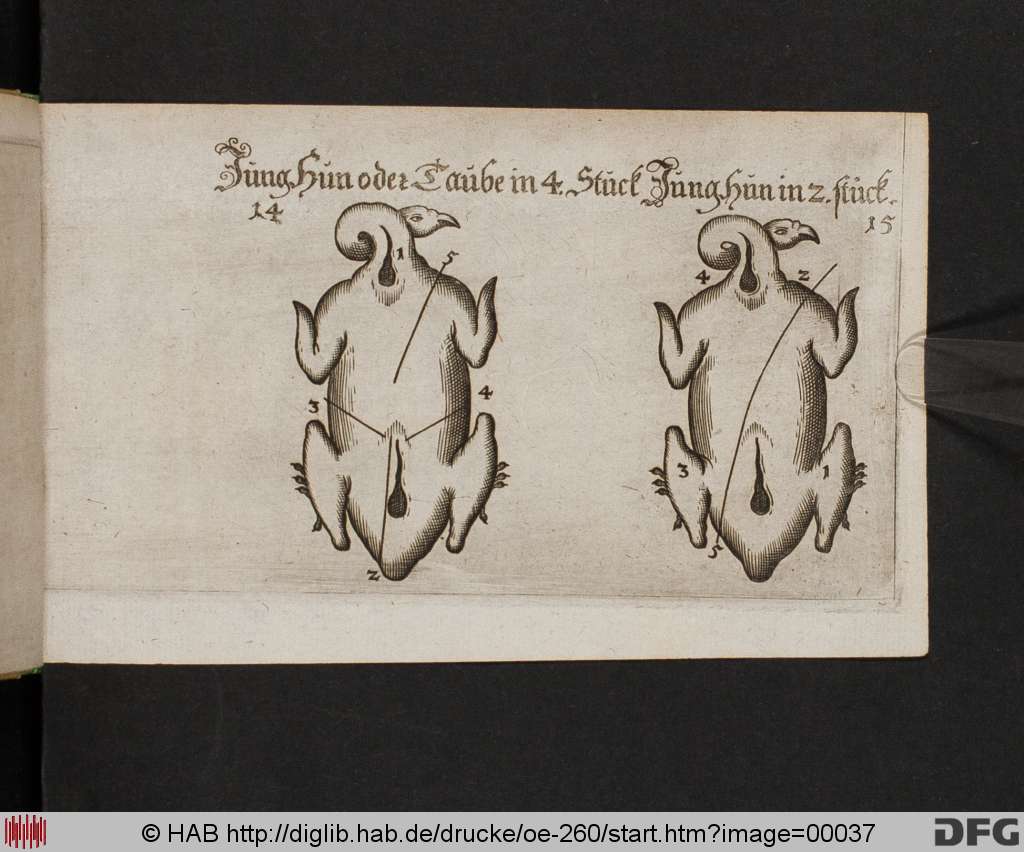 Jung Hun oder Taube in 4. Stuck
14
1
5
3
4
2
Jung hun in 2. stuck.
15
4
2
3
1
5
© HAB http://diglib.hab.de/drucke/oe-260/start.htm?image=00037
DFG